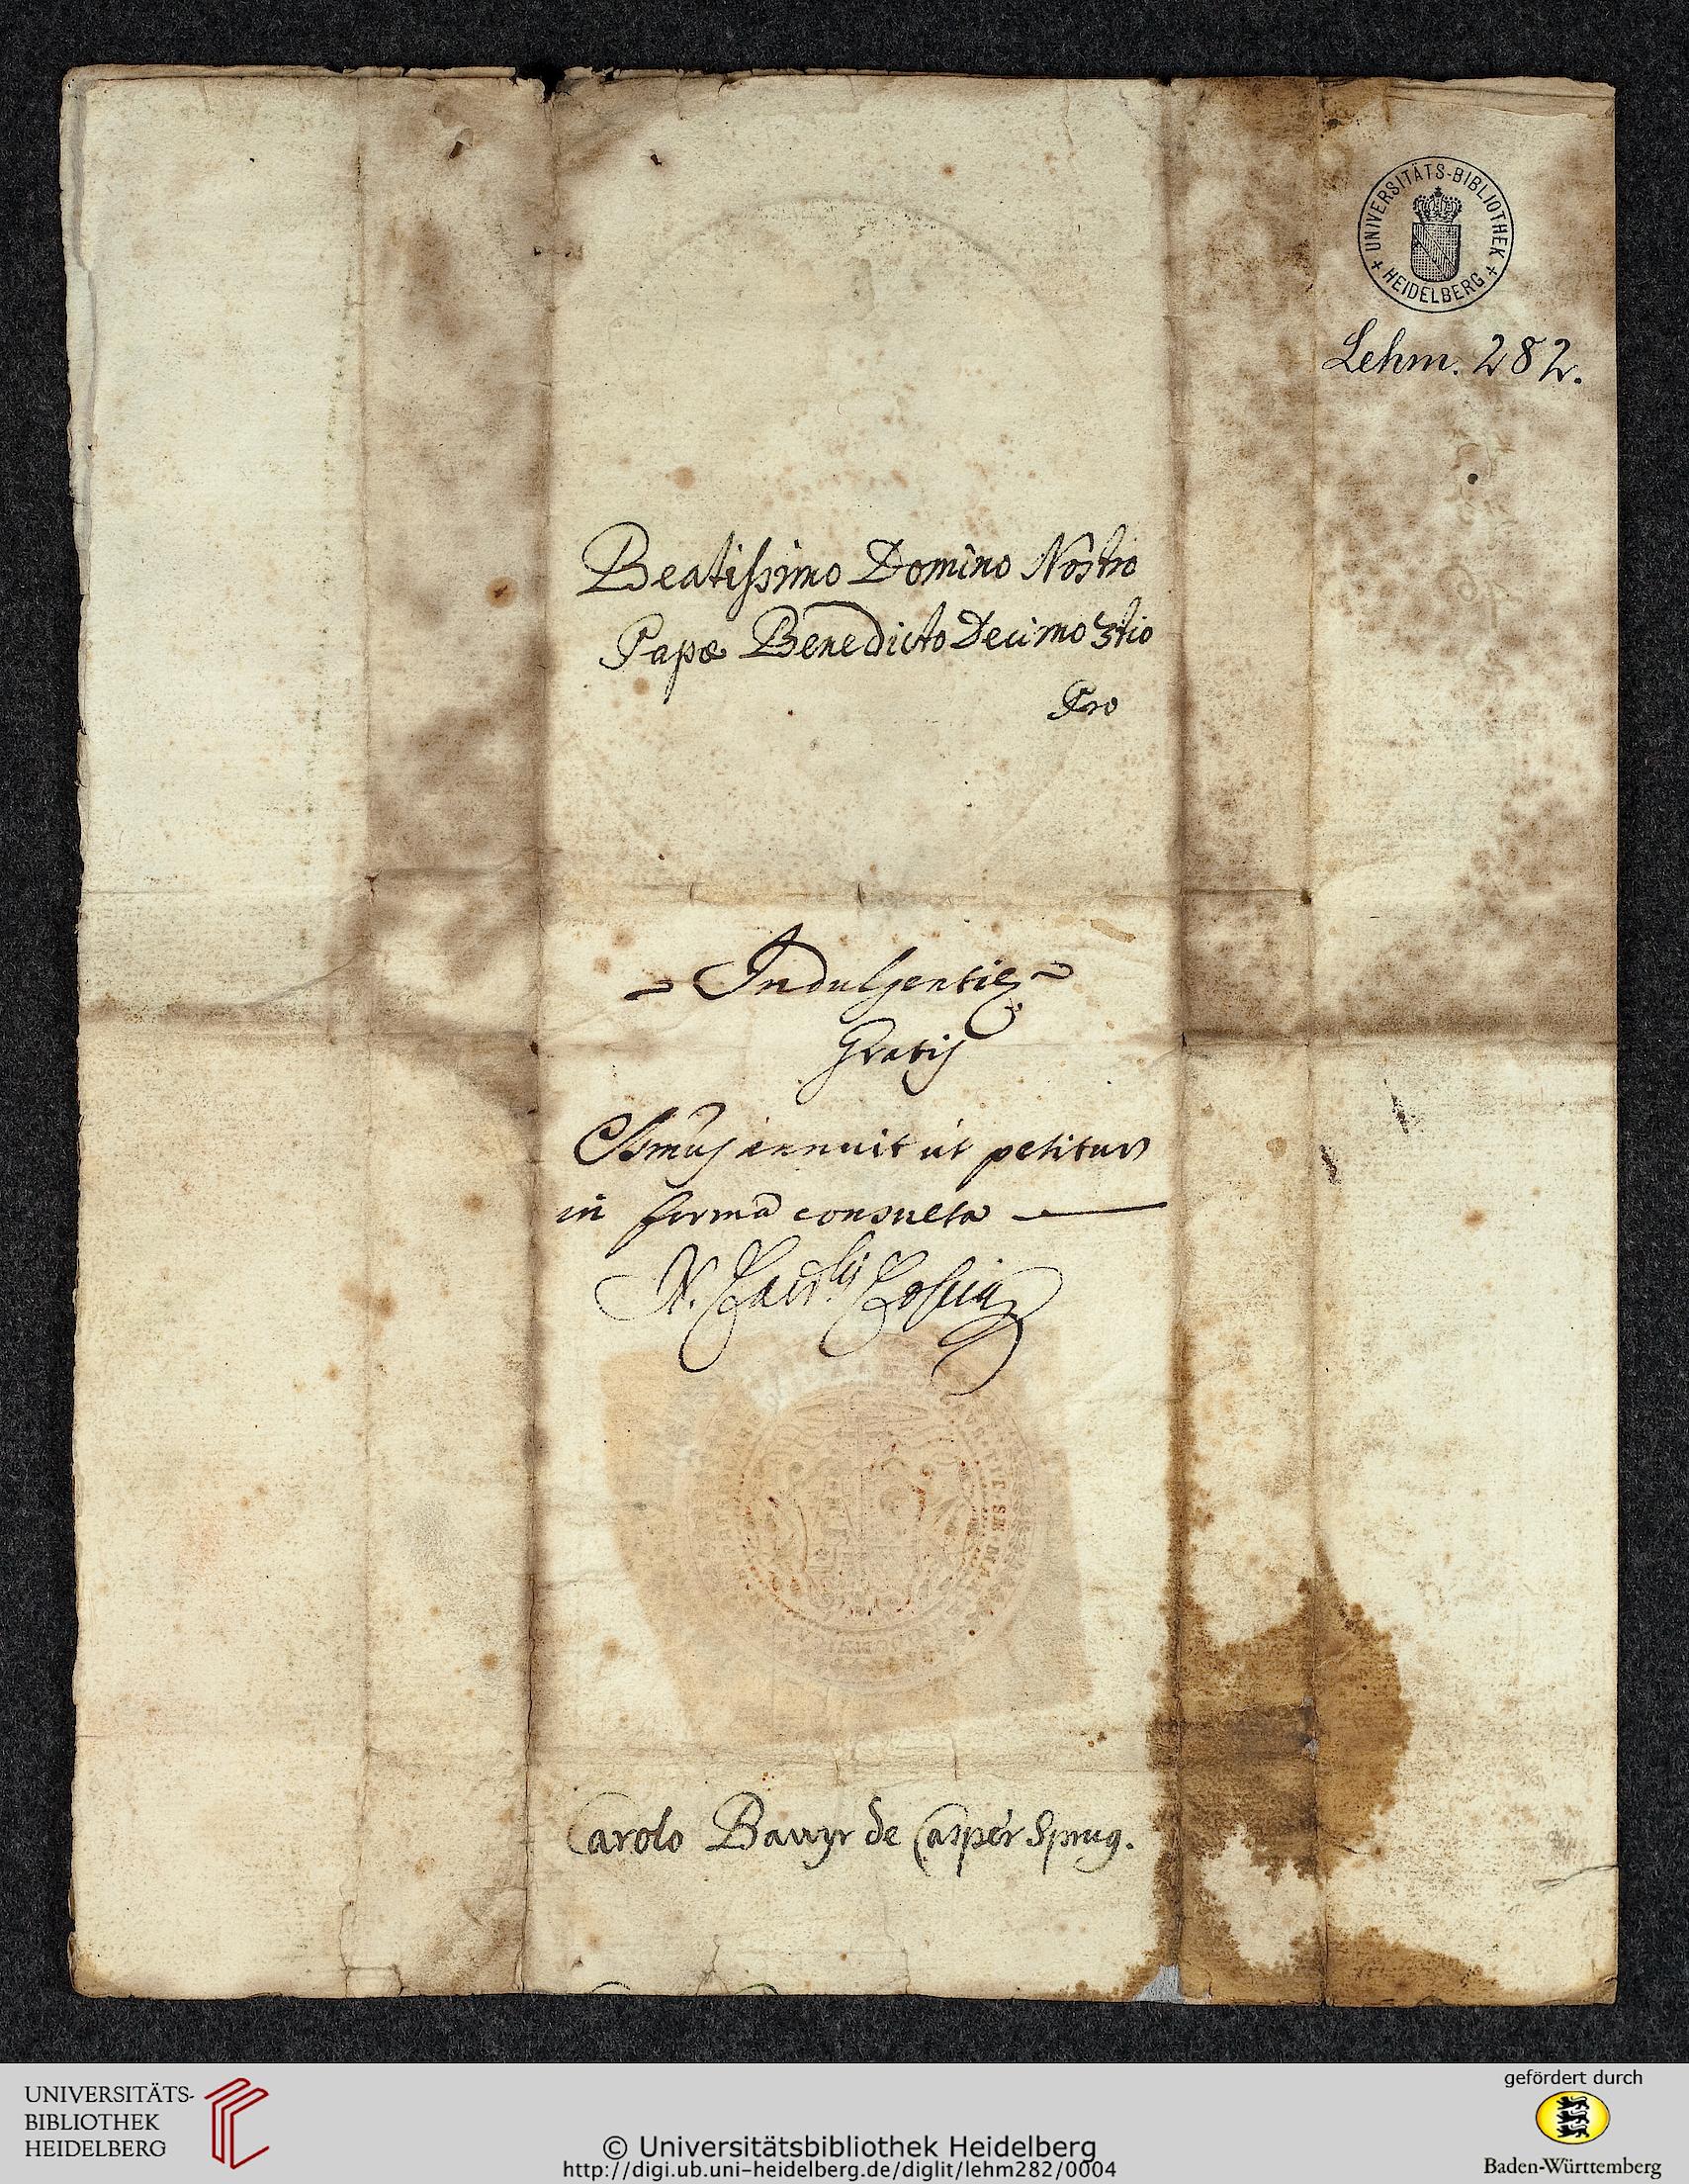 UNIVERSITÄTS-BIBLIOTHEK
HEIDELBERG
Lehm. 282.
Beatissimo Domino Nostro
Papæ Benedicto Decimo 3tio
Pro
Indulgentie
Gratis
Ssmus annuit ut petitur
in forma consueta
N. Card.lis Coscia
Carolo Bauyr de Casper Sprug.
UNIVERSITÄTS-
BIBLIOTHEK
HEIDELBERG
© Universitätsbibliothek Heidelberg
http://digi.ub.uni-heidelberg.de/diglit/lehm282/0004
gefördert durch
Baden-Württemberg